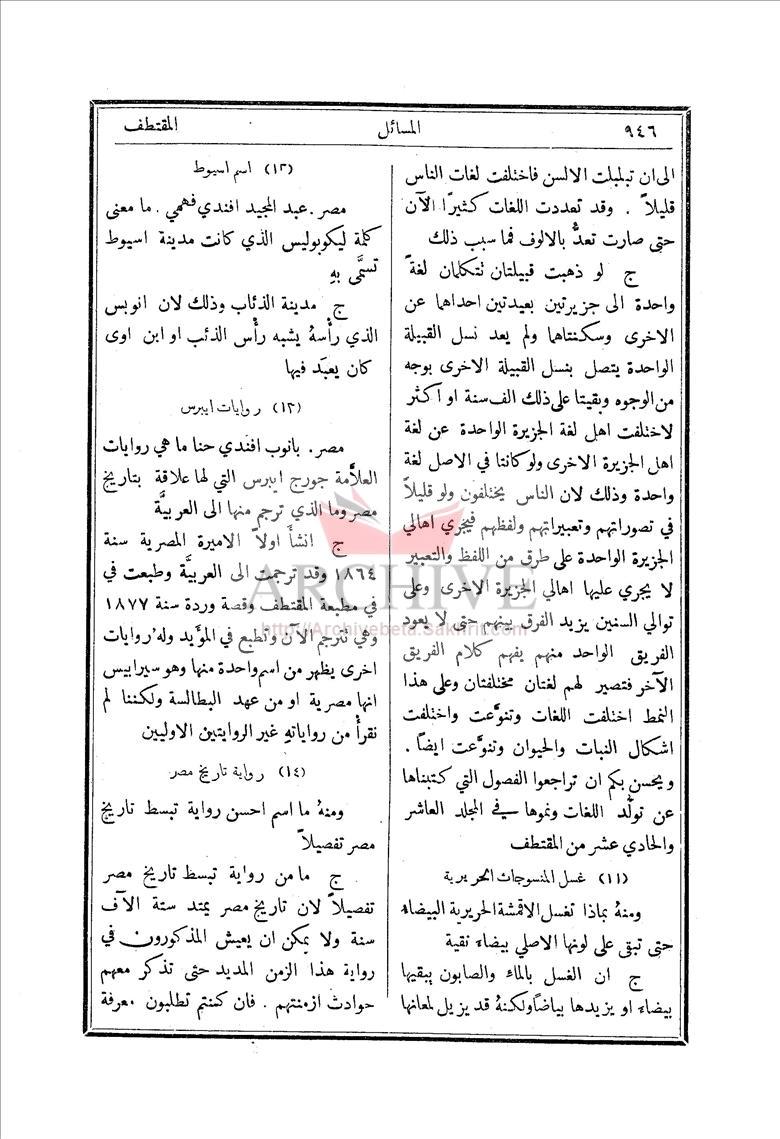 ٩٤٦
المسائل
المقتطف
الى ان تبلبلت الالسن فاختلفت لغات الناس
قليلاً . وقد تعددت اللغات كثيرًا الآن
حتى صارت تعدُّ بالالوف فما سبب ذلك
ج لو ذهبت قبيلتان تتكلمان لغةً
واحدة الى جزيرتين بعيدتين احداهما عن
الاخرى وسكنتاهما ولم يعد نسل القبيلة
الواحدة يتصل بنسل القبيلة الاخرى بوجه
من الوجوه وبقيتا على ذلك الف سنة او اكثر
لاختلفت اهل لغة الجزيرة الواحدة عن لغة
اهل الجزيرة الاخرى ولو كانتا في الاصل لغة
واحدة وذلك لان الناس يختلفون ولو قليلاً
في تصوراتهم وتعبيراتهم ولفظهم فيجري اهالي
الجزيرة الواحدة على طرق من اللفظ والتعبير
لا يجري عليها اهالي الجزيرة الاخرى وعلى
توالي السنين يزيد الفرق بينهم حتى لا يعود
الفريق الواحد منهم يفهم كلام الفريق
الآخر فتصير لهم لغتان مختلفتان وعلى هذا
النمط اختلفت اللغات وتنوَّعت واختلفت
اشكال النبات والحيوان وتنوعت ايضاً .
ويحسن بكم ان تراجعوا الفصول التي كتبناها
عن تولُّد اللغات ونموها في المجلد العاشر
والحادي عشر من المقتطف
(١١) غسل المنسوجات الحريرية
ومنهُ بماذا تغسل الاقمشة الحريرية البيضاء
حتى تبقى على لونها الاصلي بيضاء نقية
ج ان الغسل بالماء والصابون يبقيها
بيضاء او يزيدها بياضاً ولكنهُ قد يزيل لمعانها
(١٢) اسم اسيوط
مصر . عبد المجيد افندي فهمي . ما معنى
كلمة ليكوبوليس الذي كانت مدينة اسيوط
تسمَّى بهِ
ج مدينة الذئاب وذلك لان انوبس
الذي رأسهُ يشبه رأس الذئب او ابن اوى
كان يعبَد فيها
(١٣) روايات ايبرس
مصر . بانوب افندي حنا ما هي روايات
العلاَّمة جورج ايبرس التي لها علاقة بتاريخ
مصر وما الذي ترجم منها الى العربيَّة
ج انشأ اولاً الاميرة المصرية سنة
١٨٦٤ وقد ترجمت الى العربيَّة وطبعت في
في مطبعة المقتطف وقصة وردة سنة ١٨٧٧
وهي تترجم الآن وتطبع في المؤيد وله روايات
اخرى يظهر من اسم واحدة منها وهو سيرابيس
انها مصرية او من عهد البطالسة ولكننا لم
نقرأْ من رواياتهِ غير الروايتين الاوليين
(١٤) رواية تاريخ مصر
ومنهُ ما اسم احسن رواية تبسط تاريخ
مصر تفصيلاً
ج ما من رواية تبسط تاريخ مصر
تفصيلاً لان تاريخ مصر يمتد ستة الآف
سنة ولا يمكن ان يعيش المذكورون في
رواية هذا الزمن المديد حتى تذكر معهم
حوادث ازمنتهم . فان كنتم تطلبون معرفة
ARCHIVE
http://Archivebeta.Sakhrit.com